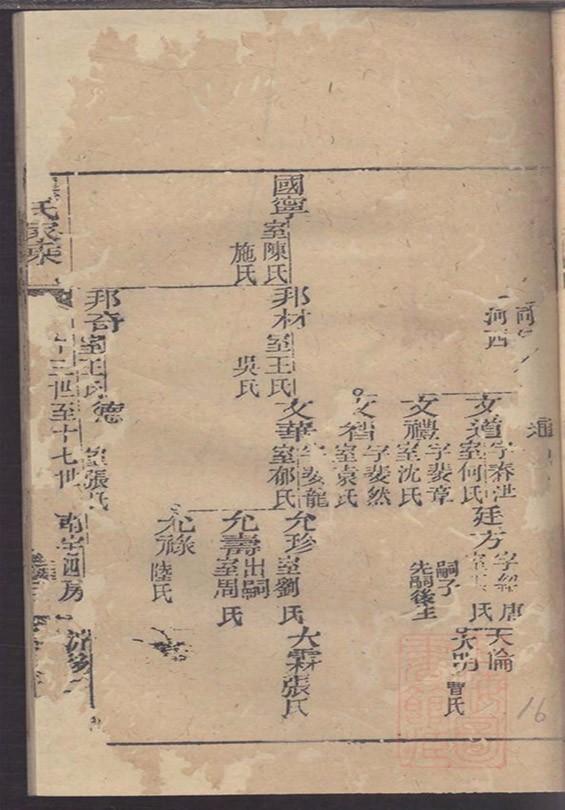 河西
文道 字春泄
室何氏
廷方
字經唐
氏
嗣子
先嗣後主
天倫
曹氏
文禮 字斐章
室沈氏
字斐然
室袁氏
國寧
室陳氏
施氏
邦材
室王氏
吳氏
文華 字斐龍
室郁氏
允珍
室劉氏
大霖
張氏
允壽 出嗣
室周氏
允祿
陸氏
邦奇
室王氏
德
室張氏
氏家乘
十三世至十七世
南宅四房
16